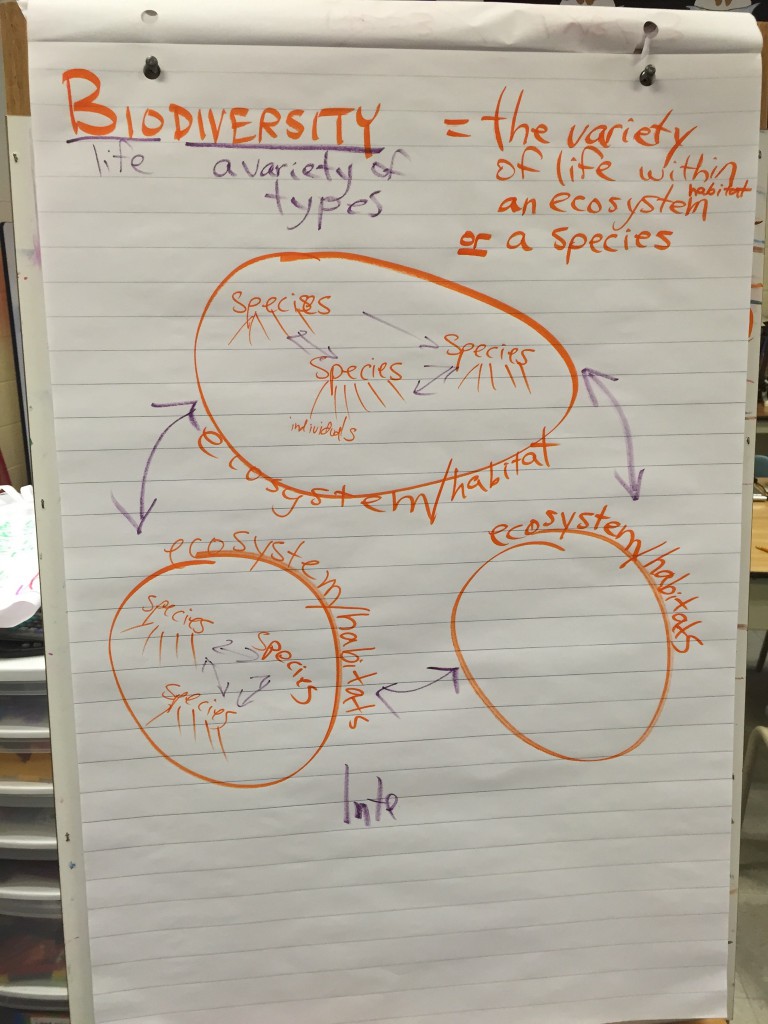 BIODIVERSITY
life a variety of
types
= the variety
of life within
habitat
an ecosystem
or a species
Species
Species
Species
individuals
ecosystem/habitat
ecosystem/habitats
Species
Species
Species
ecosystem/habitats
Inte